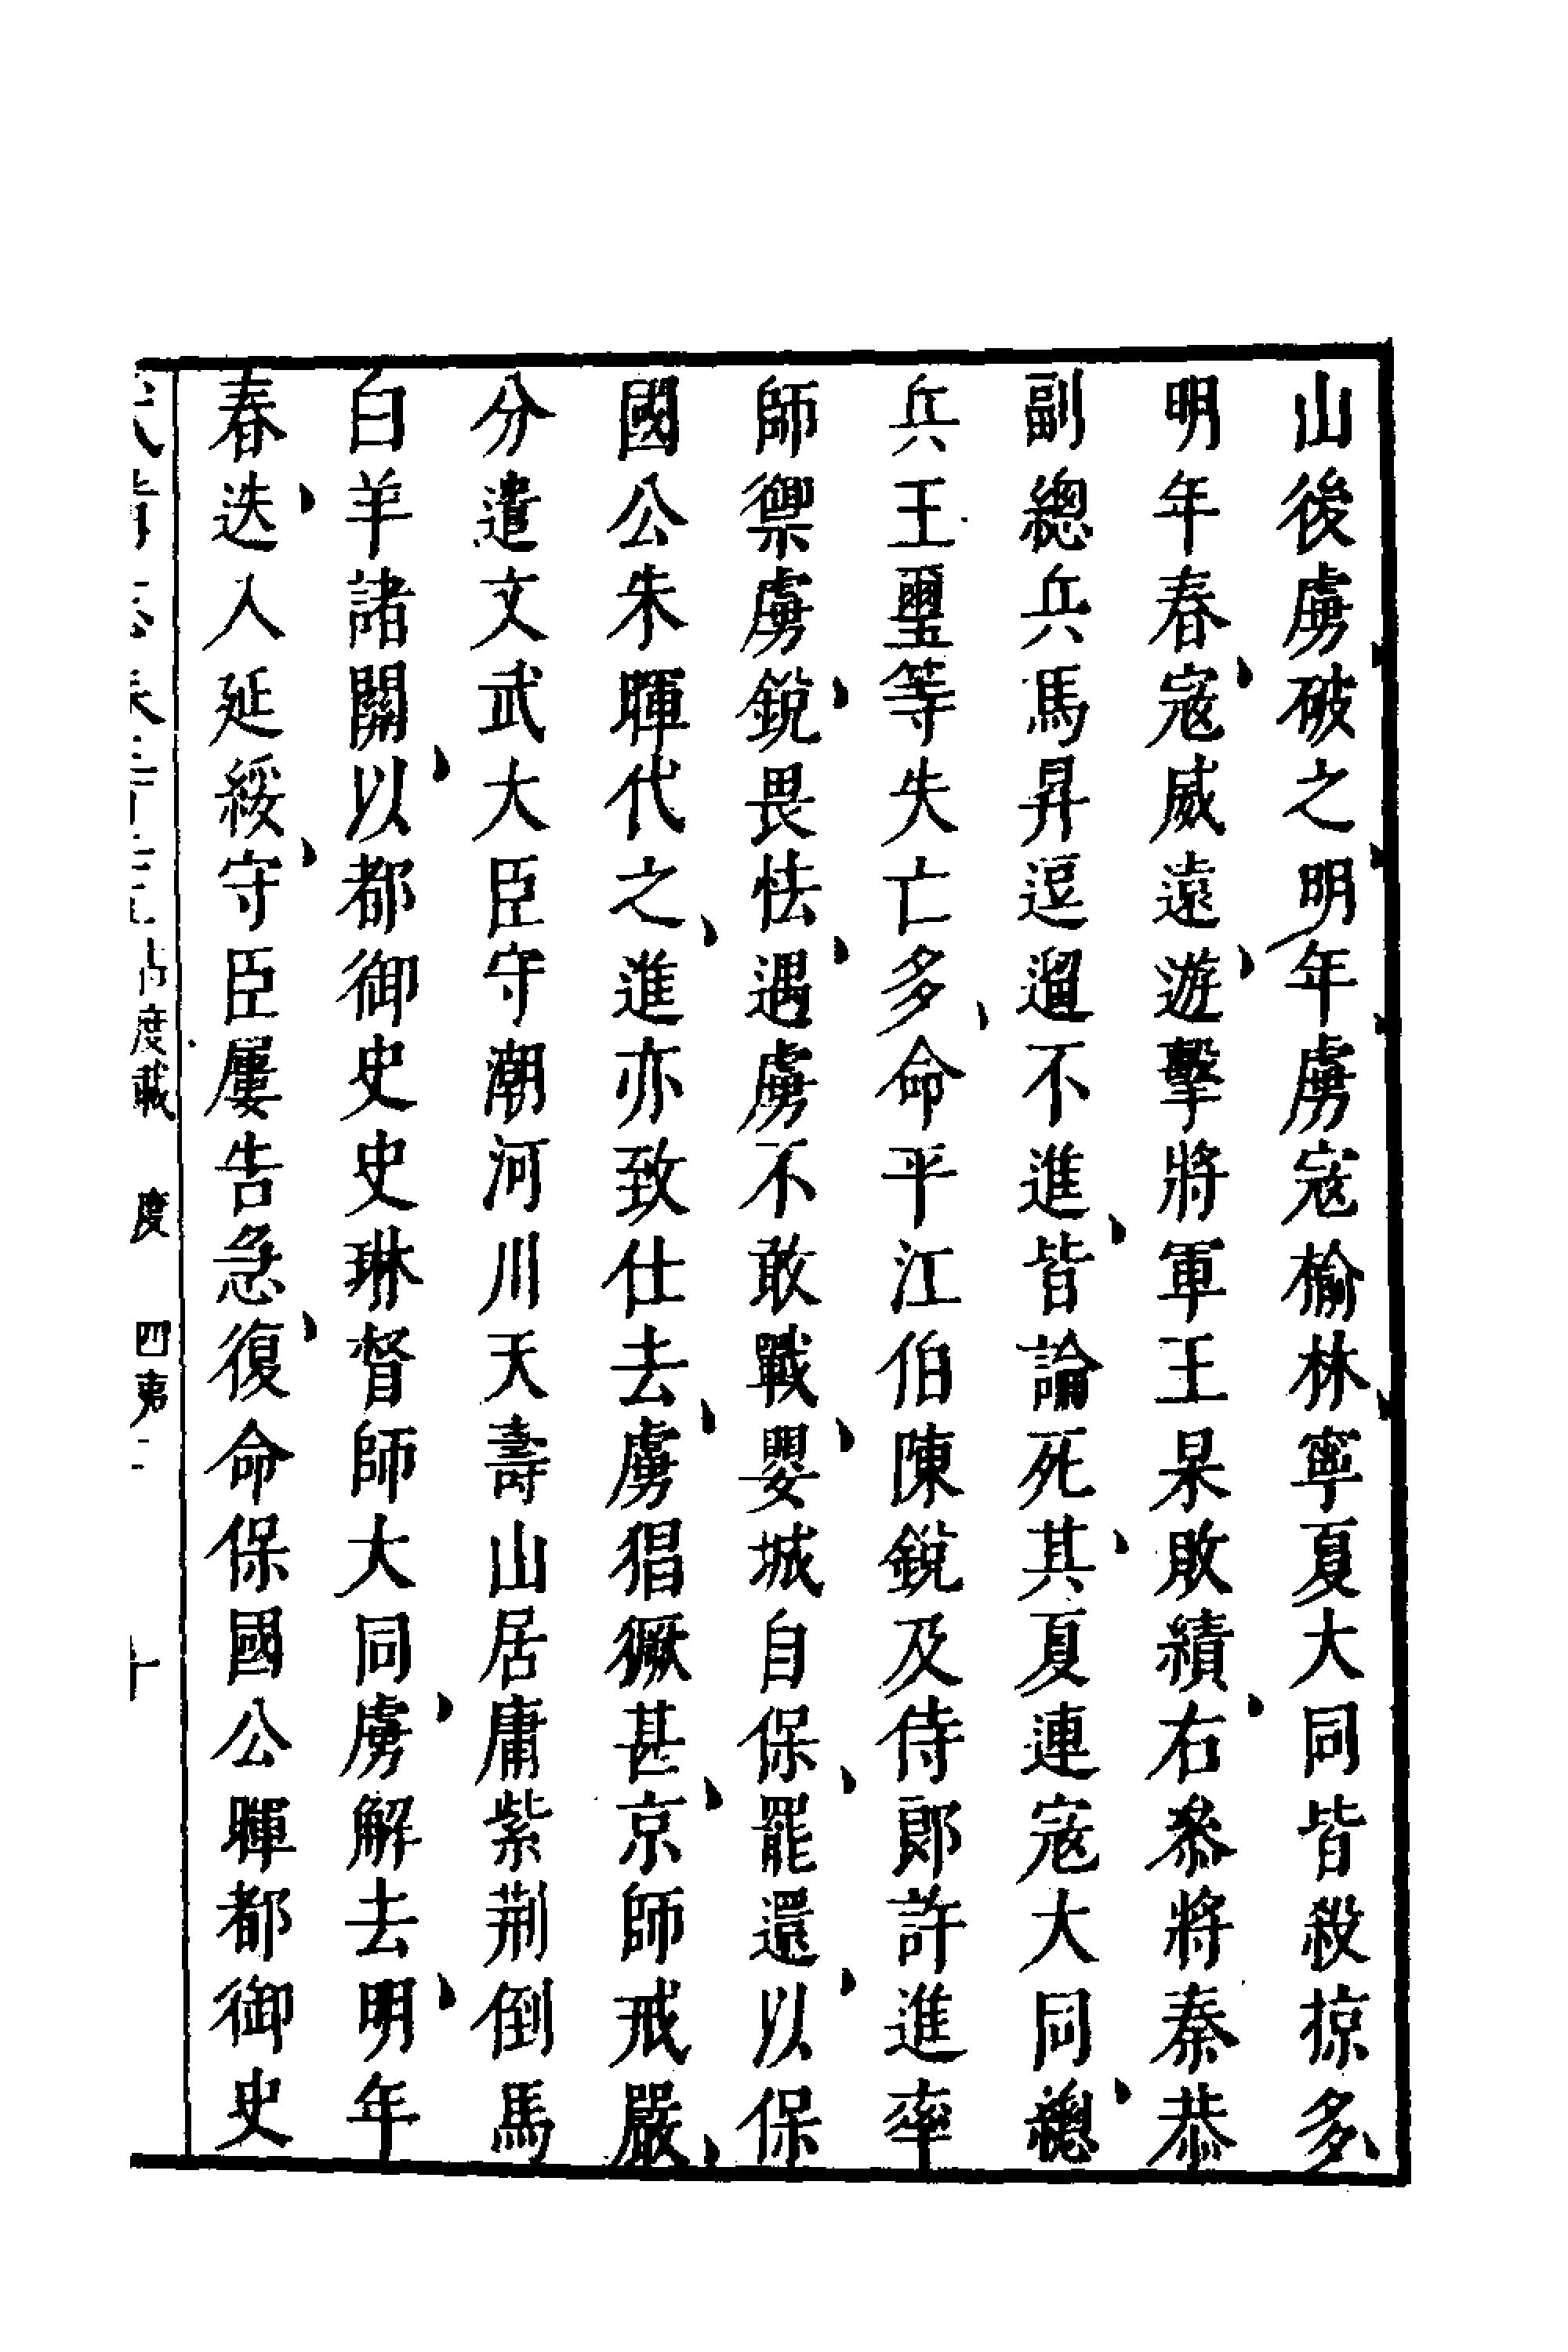 山後虜破之明年虜寇榆林寧夏大同皆殺掠多
明年春寇威遠遊擊將軍王杲敗績右叅將秦恭
副總兵馬昇逗遛不進皆論死其夏連寇大同總
兵王璽等失亡多命平江伯陳銳及侍郎許進率
師禦虜銳畏怯遇虜不敢戰嬰城自保罷還以保
國公朱暉代之進亦致仕去虜猖獗甚京師戒嚴
分遣文武大臣守潮河川天壽山居庸紫荆倒馬
白羊諸關以都御史史琳督師大同虜解去明年
春迭入延綏守臣屢告急復命保國公暉都御史
度載 度 四夷